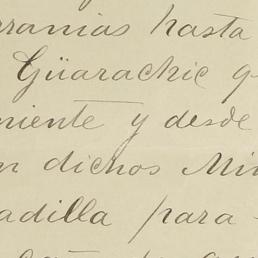 rranias hasta
Güarachic q
niente y desde
n dichos Min
adilla para-